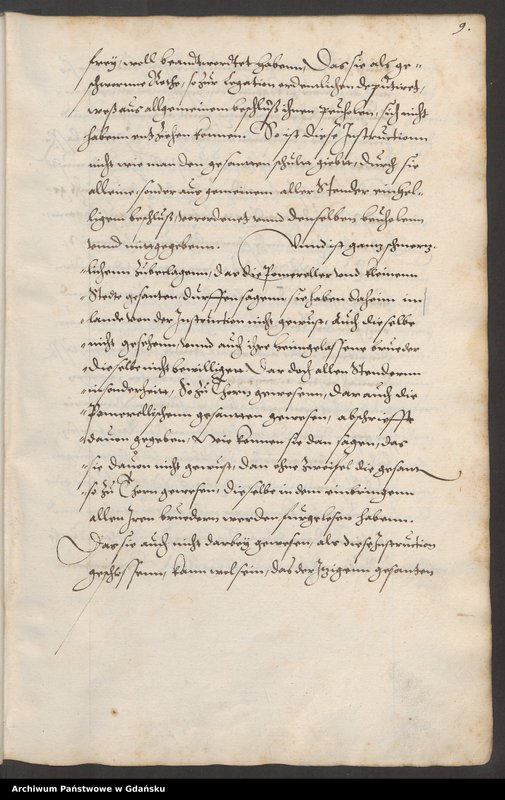 9.
frey, woll beandtwordtet habenn, Das sie als ge-
schworne Rethe, so zur Legation ordentlichen deputiret,
weß aus allgemeinem beschluß ihnen beuholen, sich nicht
habenn entziehen können. So ist diese Instruction
nicht wie man den gesanten schulth giebet, durch sie
alleine, sonder aus gemeinem aller Stender einhel-
ligem beschluß, verordenet vnnd denselben beuholenn
vnnd mitgegebenn. Vnnd ist gantz schmertz-
lichenn zubeclagenn, das die Pomereller vnd kleinenn
Stedte gesanten, durffen sagenn sie haben daheim im
lande von der Instruction nicht gewust, Auch dieselbe
nicht gesehenn, vnnd auch ihre heimgelassene brueder
dieselbe nicht bewilligen. Dar doch allen Stendernn
insonderheitt, So zu Thorn gewesenn, dar auch die
Pomerellischenn gesanten gewesen, abschriefft
dauon gegeben. Wie konnen sie dan sagen, das
sie dauon nicht gewust, dan ohne zweifel die gesant
so zu Thorn gewesen, dieselbe in dem einbringenn
allen Iren bruedern werden furgelesen habenn.
Das sie auch nicht darbey gewesen, als diese Instruction
geschlossenn, kann wol sein, das der Itzigenn gesanten
Archiwum Państwowe w Gdańsku